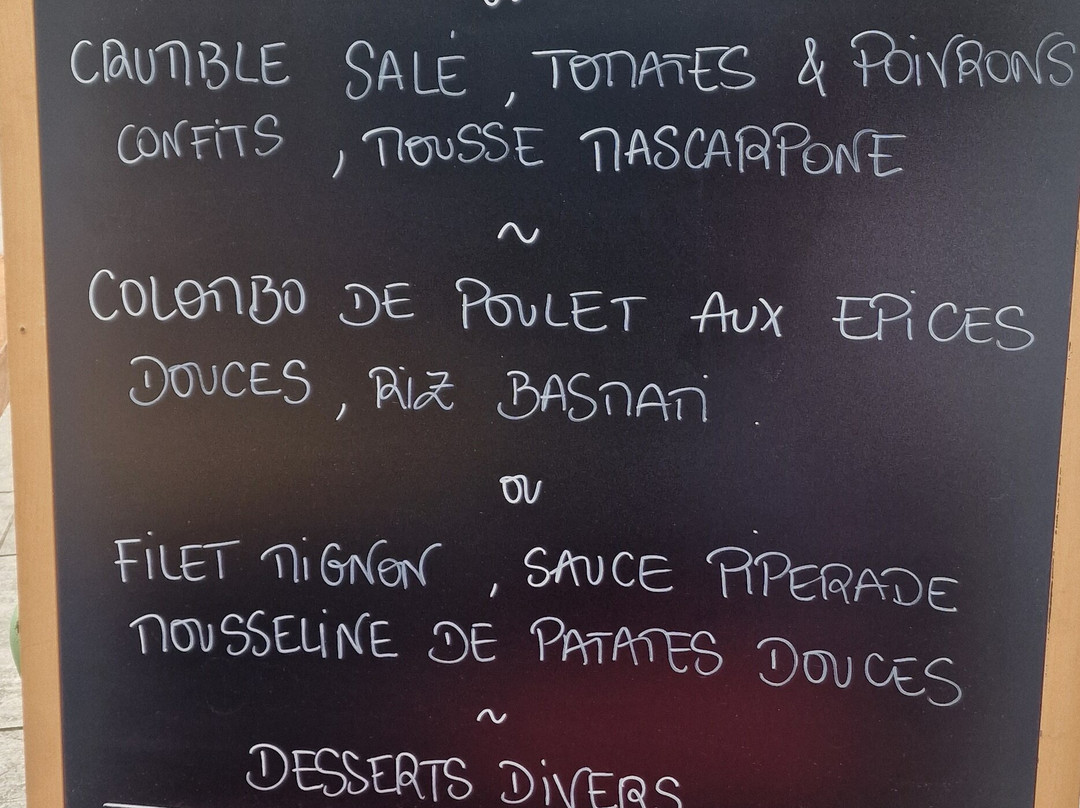 CRUMBLE SALÉ, TOMATES & POIVRONS
CONFITS, MOUSSE MASCARPONE
~
COLOMBO DE POULET AUX EPICES
DOUCES, RIZ BASMATI.
OU
FILET MIGNON, SAUCE PIPERADE
MOUSSELINE DE PATATES DOUCES
~
DESSERTS DIVERS